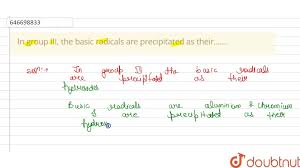 646698833
In group III, the basic radicals are precipitated as their.......
Soln:- In group III the basic radicals
are precipitated as their
hydroxides
Basic radicals are aluminium & chromium
& are precipitated as their
hydrox
doubtnut